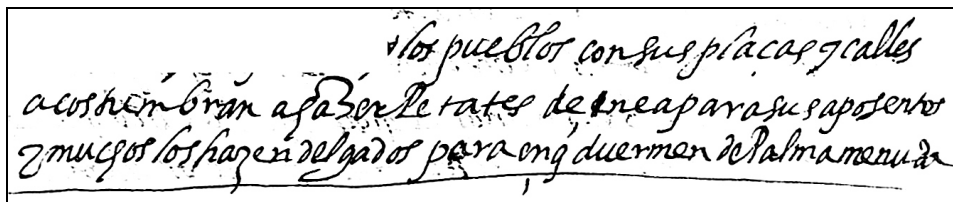 los pueblos con sus plaças y calles
acostumbran a hazer Petates de enea para sus aposentos
y muchos los hazen delgados para en q̃ duermen de Palma menuda